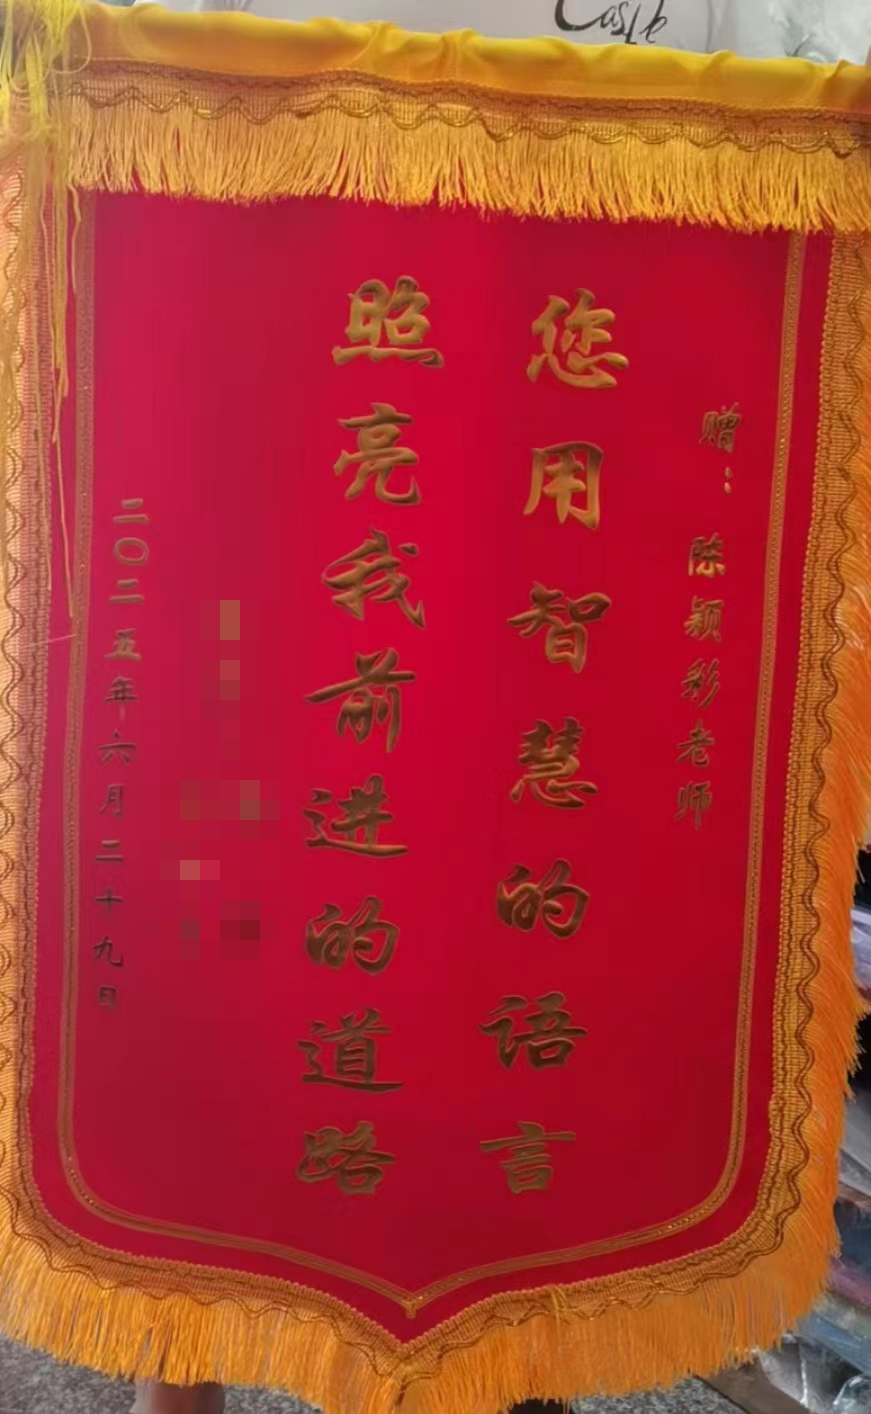 Castle
赠：陈颖彩老师
您用智慧的语言
照亮我前进的道路
二〇二五年六月二十九日